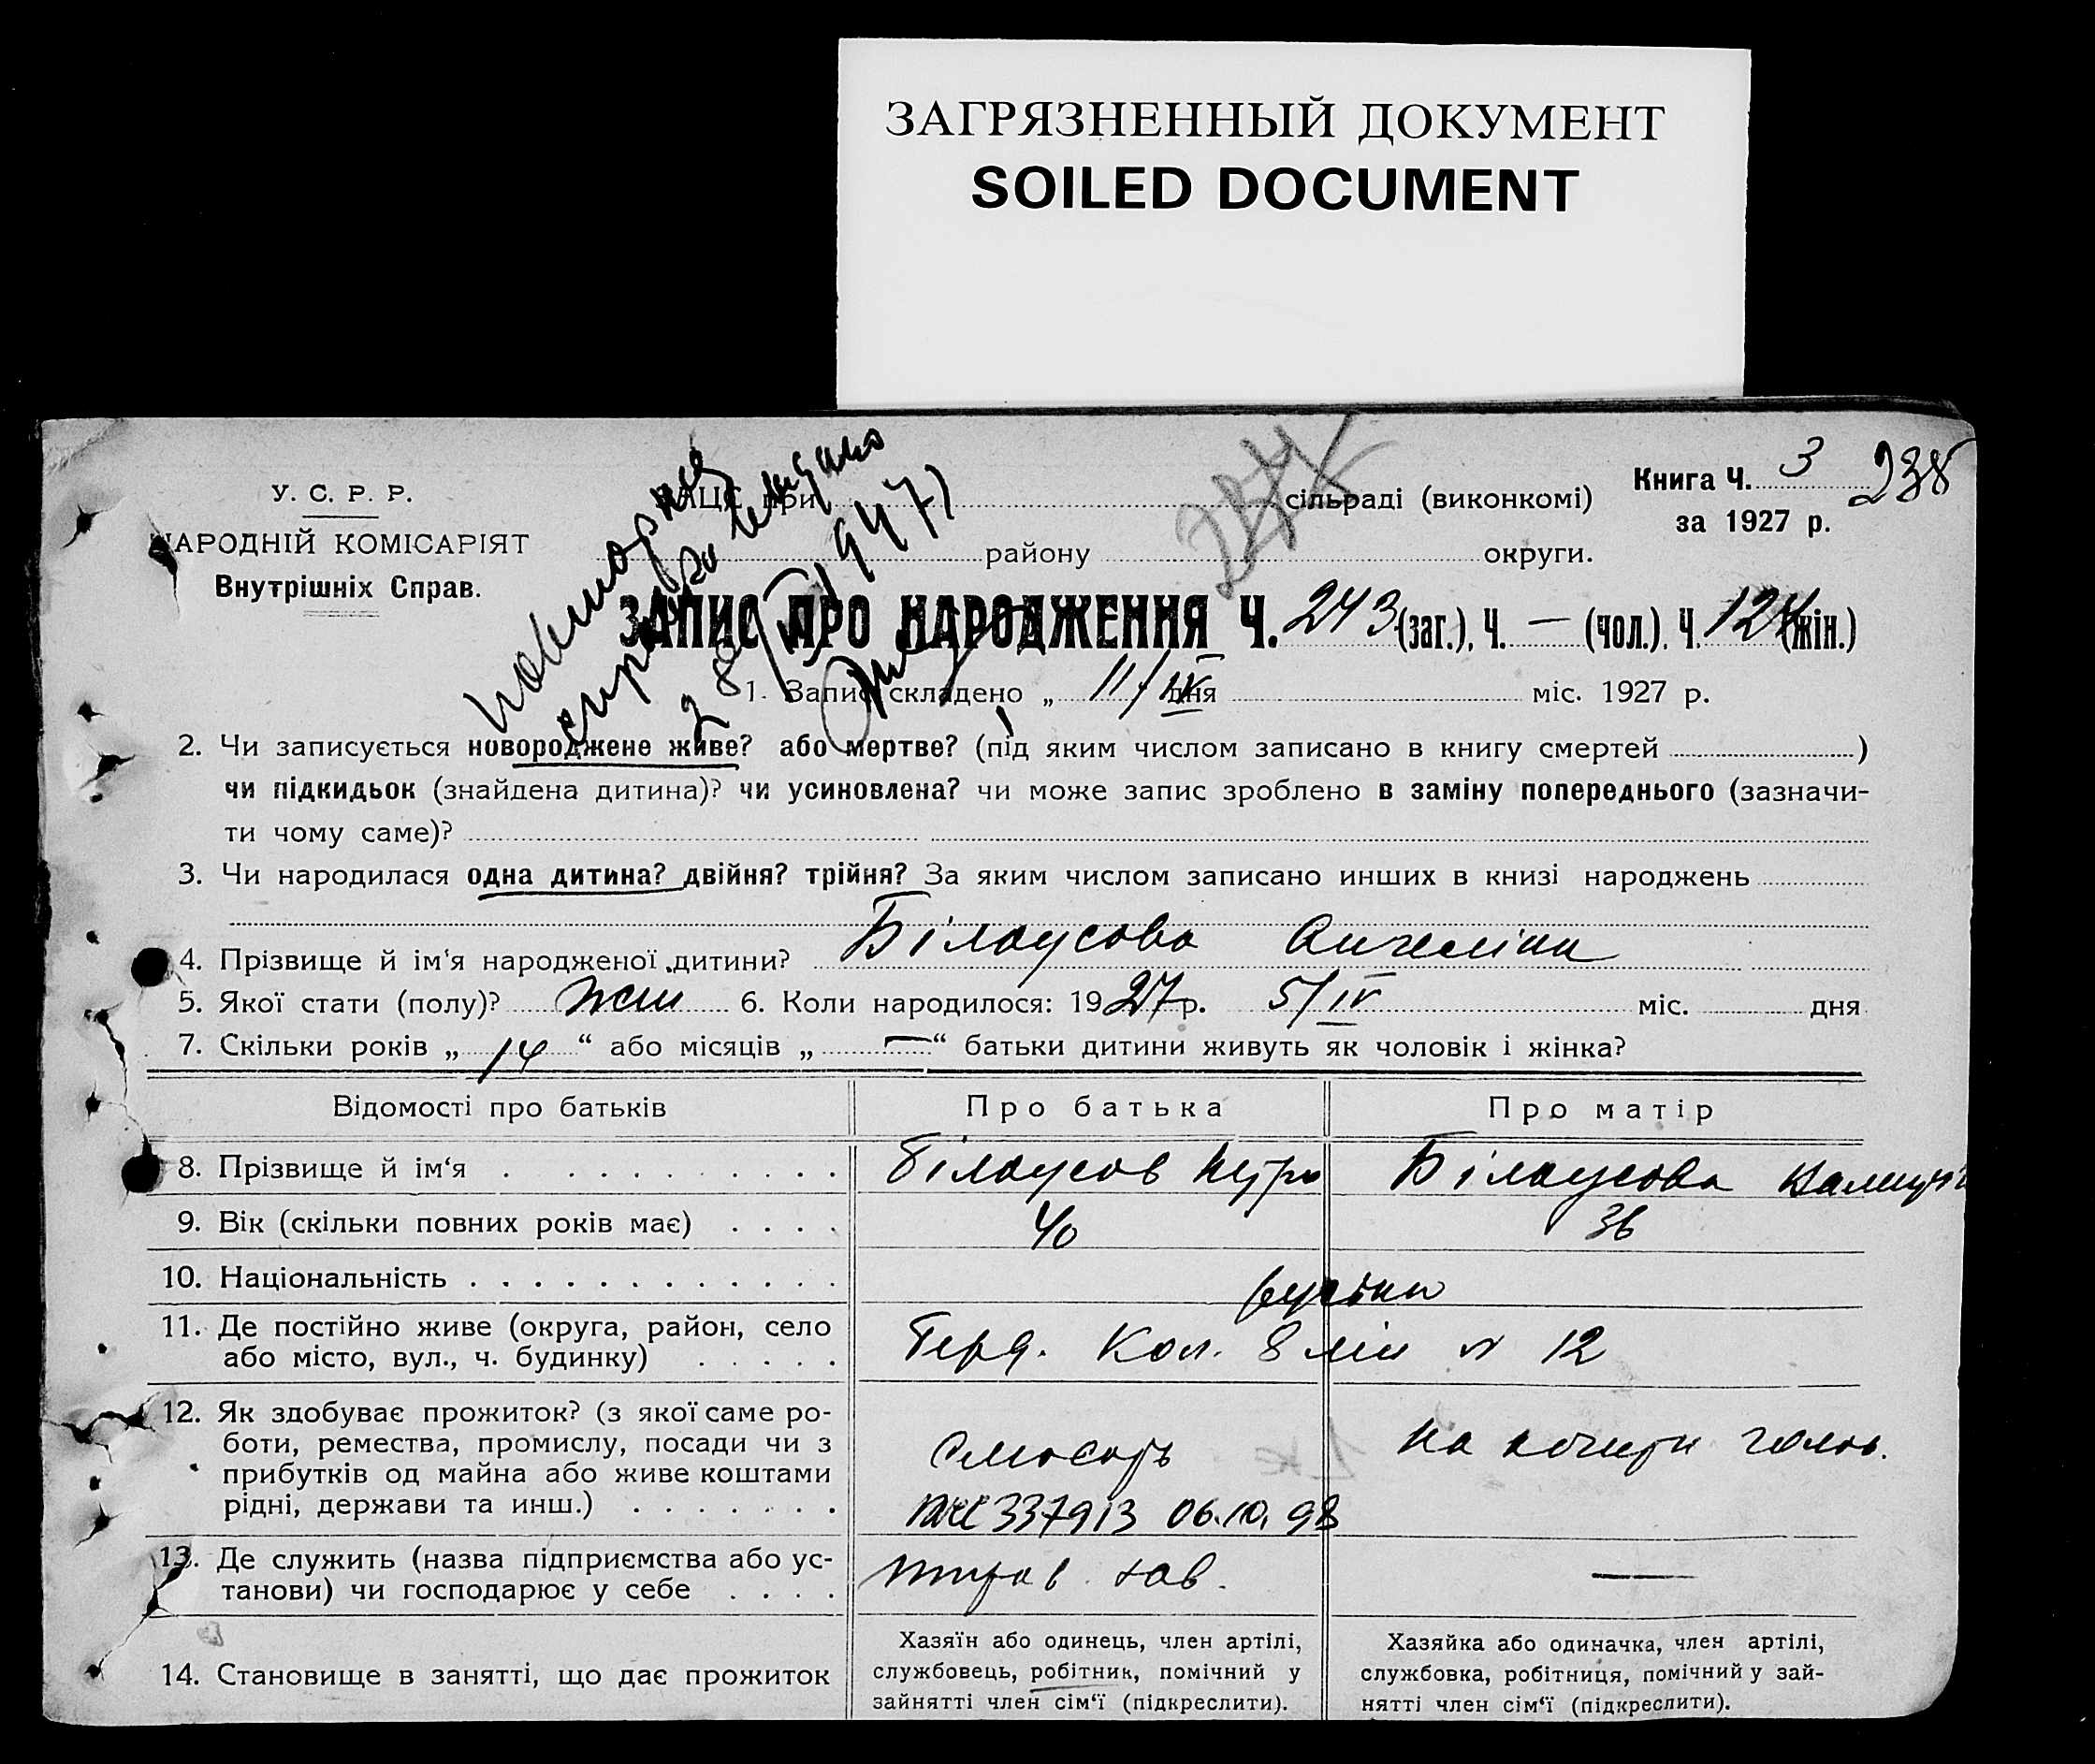 ЗАГРЯЗНЕННЫЙ ДОКУМЕНТ
SOILED DOCUMENT
Книга Ч. 3 238
за 1927 р.
У. С. Р. Р.
НАРОДНІЙ КОМІСАРІЯТ
Внутрішніх Справ.
ЗАЦС при сільраді (виконкомі)
району округи.
повторне
1947
ЗАПИС ПРО НАРОДЖЕННЯ Ч. 243 (заг.), Ч. — (чол.), Ч. 124 (жін.)
1. Запис складено „ 11/IV дня міс. 1927 р.
2. Чи записується новороджене живе? або мертве? (під яким числом записано в книгу смертей )
чи підкидьок (знайдена дитина)? чи усиновлена? чи може запис зроблено в заміну попереднього (зазначи-
ти чому саме)?
3. Чи народилася одна дитина? двійня? трійня? За яким числом записано инших в книзі народжень
4. Прізвище й ім‘я народженої дитини? Білоусова Анжеліна
5. Якої стати (полу)? жін 6. Коли народилося: 1927 р. 5/IV міс. дня
7. Скільки років „ 14 “ або місяців „ — “ батьки дитини живуть як чоловік і жінка?
Відомості про батьків Про батька Про матір
8. Прізвище й ім‘я Білоусов Білоусова
9. Вік (скільки повних років має) 40 36
10. Національність
11. Де постійно живе (округа, район, село Кол. 8 лін N 12
або місто, вул., ч. будинку)
12. Як здобуває прожиток? (з якої саме ро-
боти, ремества, промислу, посади чи з Слюсарь
прибутків од майна або живе коштами
рідні, держави та инш.) 337913 06.10.98
13. Де служить (назва підприємства або ус- зав. —
танови) чи господарює у себе
14. Становище в занятті, що дає прожиток
Хазяїн або одинець, член артілі,
службовець, робітник, помічний у
зайнятті член сім‘ї (підкреслити).
Хазяйка або одиначка, член артілі,
службовка, робітниця, помічний у зай-
нятті член сім‘ї (підкреслити).